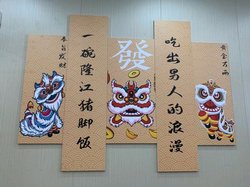 恭喜发财
一碗隆江猪脚饭
發
吃出男人的浪漫
黄金万两